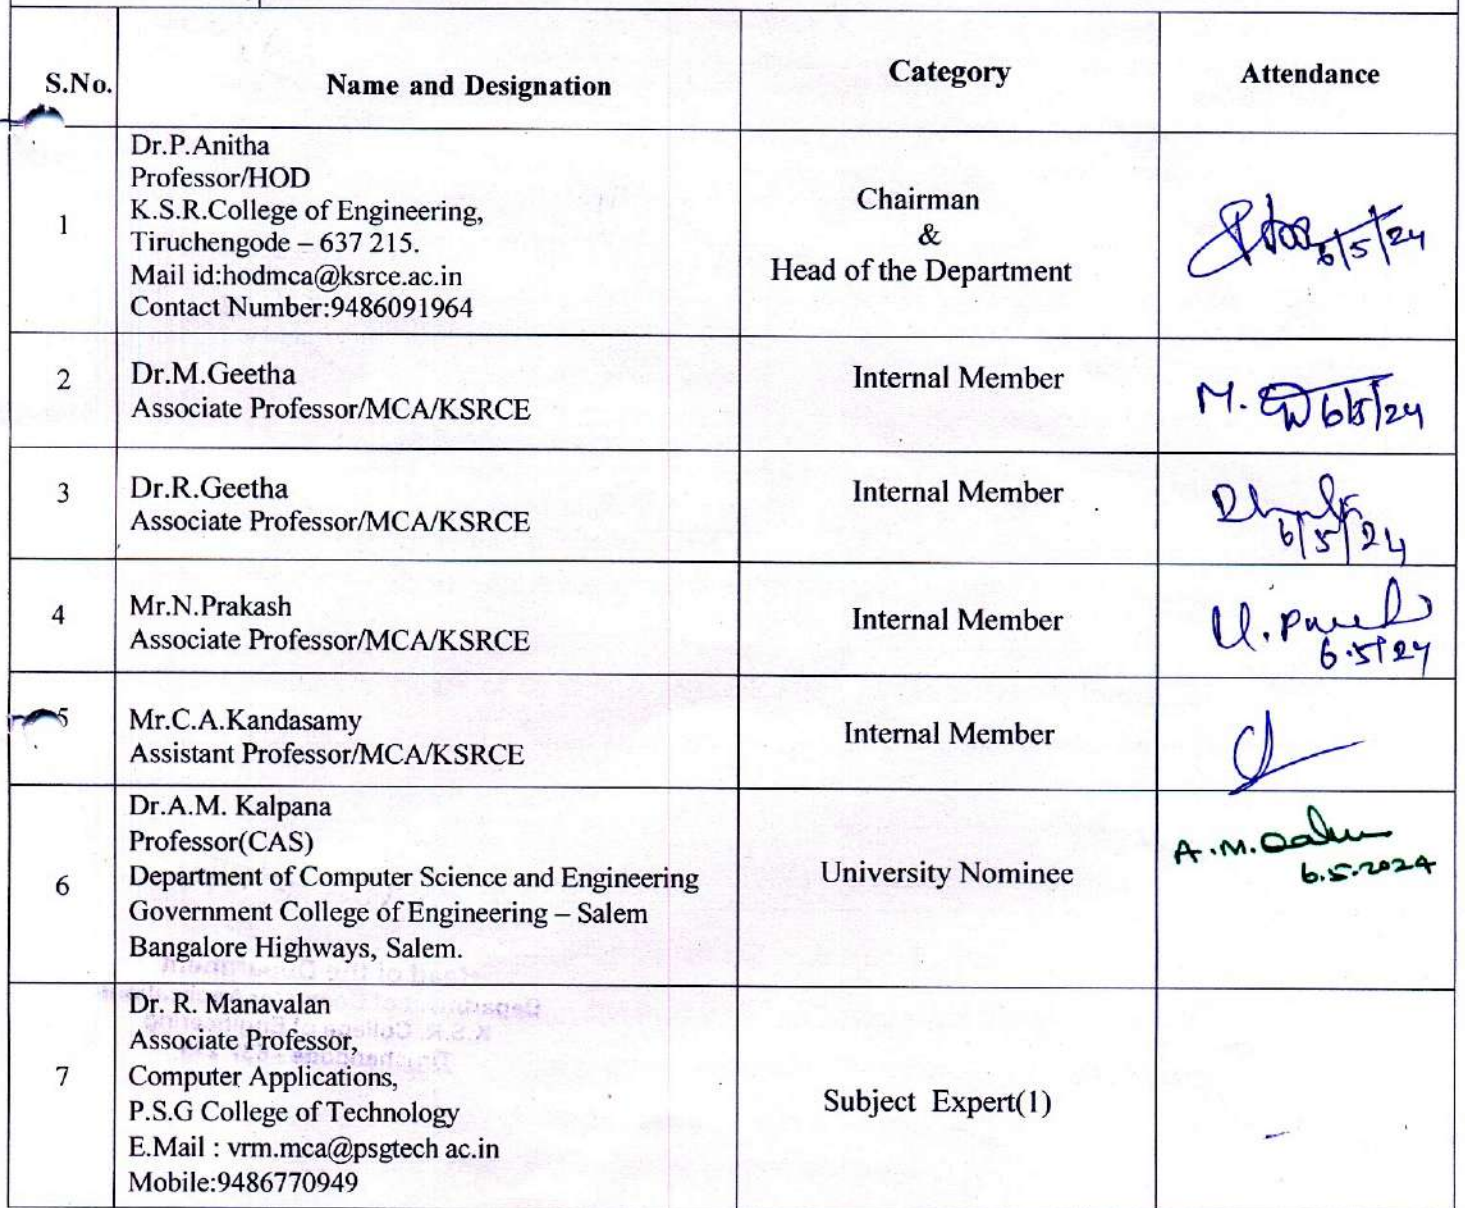 S.No.
Name and Designation
Category
Attendance
1
Dr.P.Anitha
Professor/HOD
K.S.R.College of Engineering,
Tiruchengode – 637 215.
Mail id:hodmca@ksrce.ac.in
Contact Number:9486091964
Chairman
&
Head of the Department
6/5/24
2
Dr.M.Geetha
Associate Professor/MCA/KSRCE
Internal Member
M.
6/5/24
3
Dr.R.Geetha
Associate Professor/MCA/KSRCE
Internal Member
6/5/24
4
Mr.N.Prakash
Associate Professor/MCA/KSRCE
Internal Member
6.5/24
5
Mr.C.A.Kandasamy
Assistant Professor/MCA/KSRCE
Internal Member
6
Dr.A.M. Kalpana
Professor(CAS)
Department of Computer Science and Engineering
Government College of Engineering – Salem
Bangalore Highways, Salem.
University Nominee
A.M.
6.5.2024
7
Dr. R. Manavalan
Associate Professor,
Computer Applications,
P.S.G College of Technology
E.Mail : vrm.mca@psgtech ac.in
Mobile:9486770949
Subject Expert(1)
-